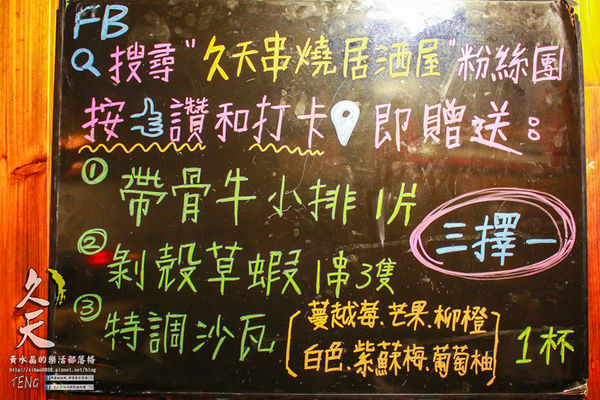 FB
搜尋"久天串燒居酒屋"粉絲團
按讚和打卡即贈送:
① 帶骨牛小排1片
② 剝殼草蝦1串3隻
③ 特調沙瓦(蔓越莓、芒果、柳橙
白色、紫蘇梅、葡萄柚)1杯
三擇一
久天
黃水晶的樂活部落格
TENG